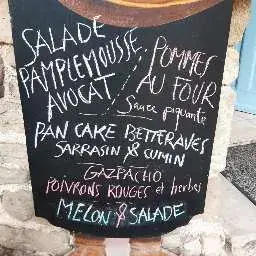 SALADE
PAMPLEMOUSSE
AVOCAT
POMMES
AU FOUR
Sauce piquante
PAN CAKE BETTERAVES
SARRASIN & CUMIN
GAZPACHO
POIVRONS ROUGES et herbes
MELON & SALADE